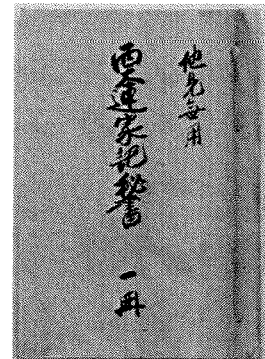 他見無用
西金蓮家記秘書 一冊